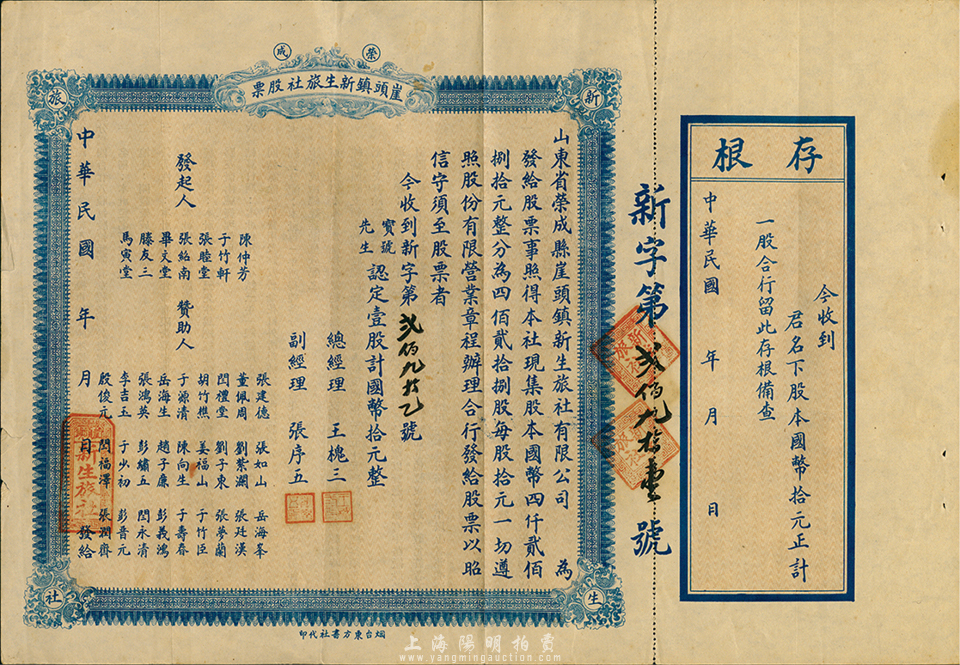 存根
今收到
君名下股本國幣拾元正計
一股合行留此存根備查
中華民國 年 月 日
新字第貳佰九拾壹號
榮成
崖頭鎮新生旅社股票
新
生
旅
社
山東省榮成縣崖頭鎮新生旅社有限公司 為
發給股票事照得本社現集股本國幣四仟貳佰
捌拾元整分為四佰貳拾捌股每股拾元一切遵
照股份有限營業章程辦理合行發給股票以昭
信守須至股票者
今收到新字第貳佰九拾乙號
寶號
先生 認定壹股計國幣拾元整
總經理 王槐三
副經理 張序五
發起人
陳仲芳
于竹軒
張睦堂
張紹南
畢文堂
滕友三
馬寅堂
贊助人
張建德 張如山 岳海峯
董佩周 劉紫瀾 張廷漢
閆禮堂 劉子東 張夢蘭
胡竹樵 姜福山 于竹臣
于源清 陳向生 于壽春
岳海生 趙子廉 彭義鴻
張鴻英 彭繡五 閆永清
李吉玉 于少初 彭晉元
殷俊元 閆福澤 張潤齋
中華民國 年 月 日 發給
新生旅社
烟台東方書社代印
上海陽明拍賣
www.yangmingauction.com